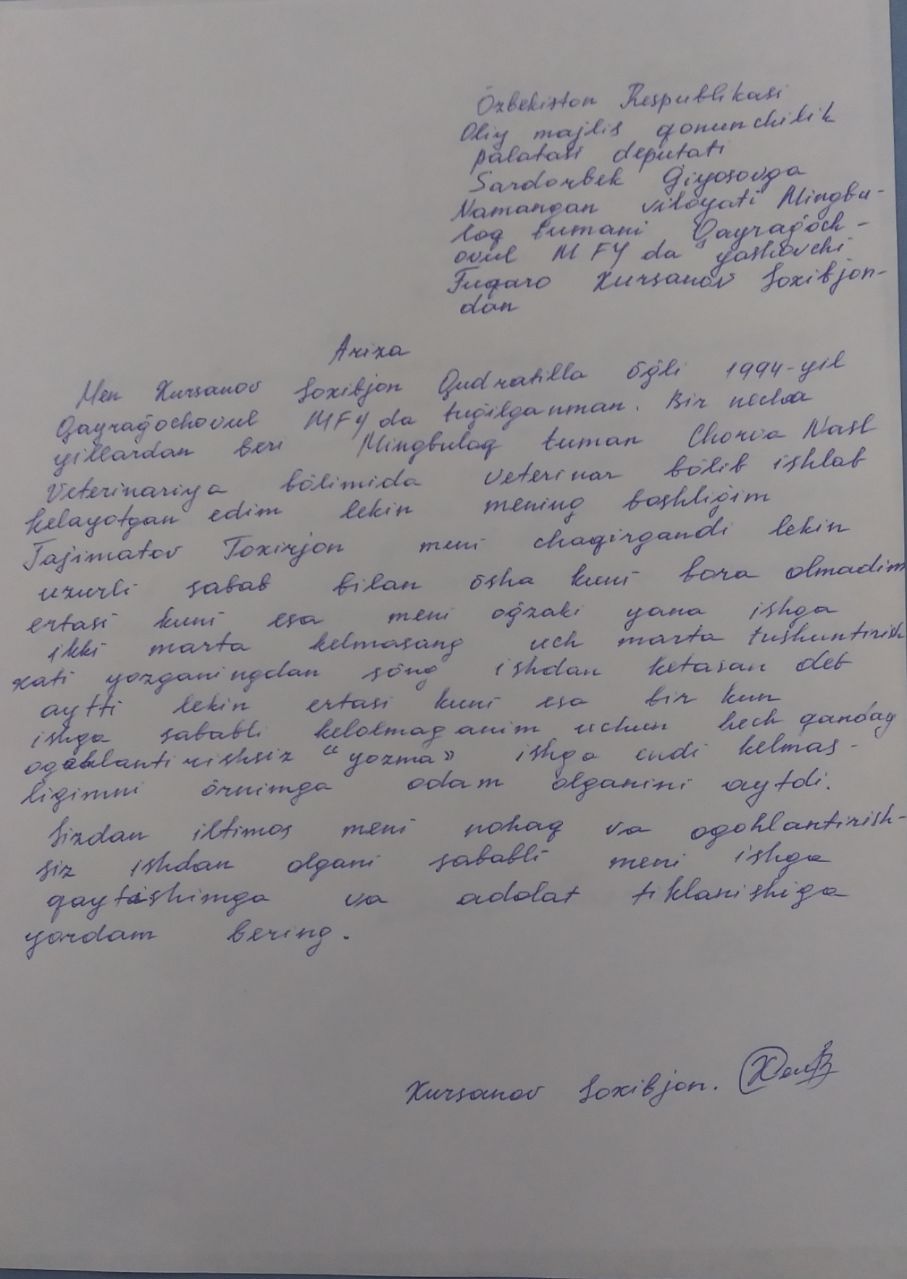 Özbekiston Respublikasi
Oliy majlis qonunchilik
palatasi deputati
Sardorbek Ğiyosovga
Namangan viloyati Mingbu-
loq tumani Qayrağoch-
ovul MFY da yashovchi
Fuqaro Xursanov Soxibjon-
dan
Ariza
Men Xursanov Soxibjon Qudratilla öğli 1994-yil
Qayrağochovul MFY da tuğilganman. Bir necha
yillardan beri Mingbuloq tuman Chorva Nasl
Veterinariya bölimida veterinar bölib ishlab
kelayotgan edim lekin mening boshliğim
Tajimatov Toxirjon meni chaqirgandi lekin
uzurli sabab bilan ösha kuni bora olmadim
ertasi kuni esa meni oğzaki yana ishga
ikki marta kelmasang uch marta tushuntirish
xati yozganingdan söng ishdan ketasan deb
aytti lekin ertasi kuni esa bir kun
ishga sababli kelolmaganim uchun hech qanday
ogohlantirishsiz “yozma” ishga endi kelmas-
ligimni örnimga odam olganini aytdi.
Sizdan iltimos meni nohaq va ogohlantirish-
siz ishdan olgani sababli meni ishga
qaytishimga va adolat tiklanishiga
yordam bering.
Xursanov Soxibjon.